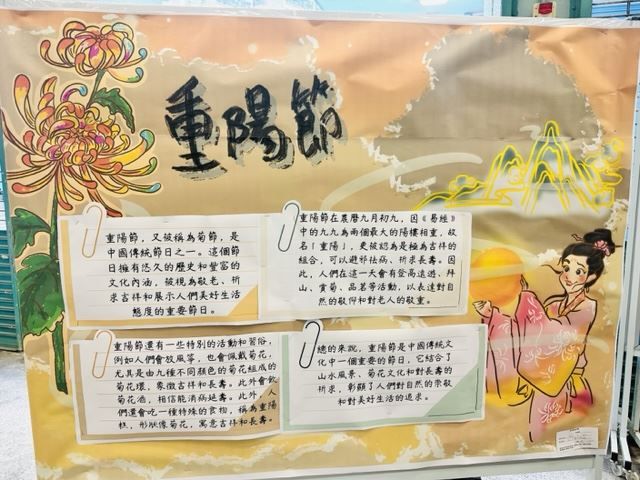 重陽節
重陽節，又被稱為菊節，是
中國傳統節日之一。這個節
日擁有悠久的歷史和豐富的
文化內涵，被視為敬老、祈
求吉祥和展示人們美好生活
態度的重要節日。
重陽節在農曆九月初九，因《易經》
中的九九為兩個最大的陽樓相重，故
名「重陽」，更被認為是極為吉祥的
組合，可以避邪祛病、祈求長壽。因
此，人們在這一天會有登高遠遊、拜
山、賞菊、品茗等活動，以表達對自
然的敬仰和對老人的敬重。
重陽節還有一些特別的活動和習俗，
例如人們會放風箏，也會佩戴菊花，
尤其是由九種不同顏色的菊花組成的
菊花環，象徵吉祥和長壽。此外會飲
菊花酒，相信能消病延壽。此外，人
們還會吃一種特殊的食物，稱為重陽
糕，形狀像菊花，寓意吉祥和長壽。
總的來說，重陽節是中國傳統文
化中一個重要的節日，它結合了
山水風景、菊花文化和對長壽的
祈求，彰顯了人們對自然的崇敬
和對美好生活的追求。